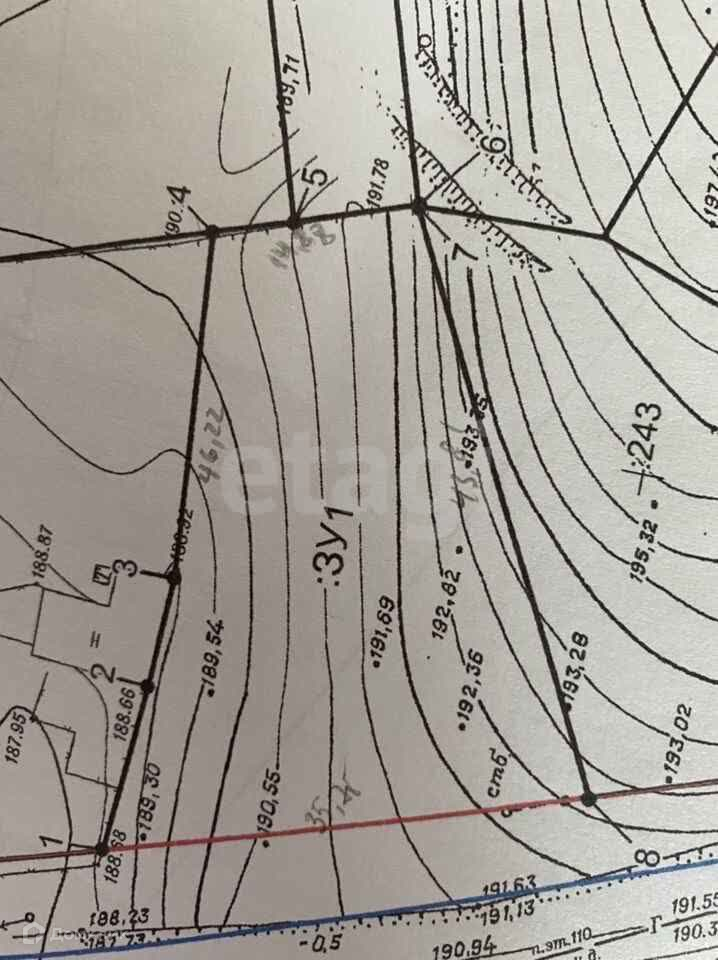 189,71
6
191.78
5
190.
4
7
:243
46,22
193,
:ЗУ1
188.87
195,32
3
192,82
2
188.66
191,69
189,54
193,28
192,36
187.95
193,02
стб
190,55
189,30
1
8
188.23
187.73
191.63
191,13
-0,5
190,94
п.эт.110
Г
191.55
190.3
etagi